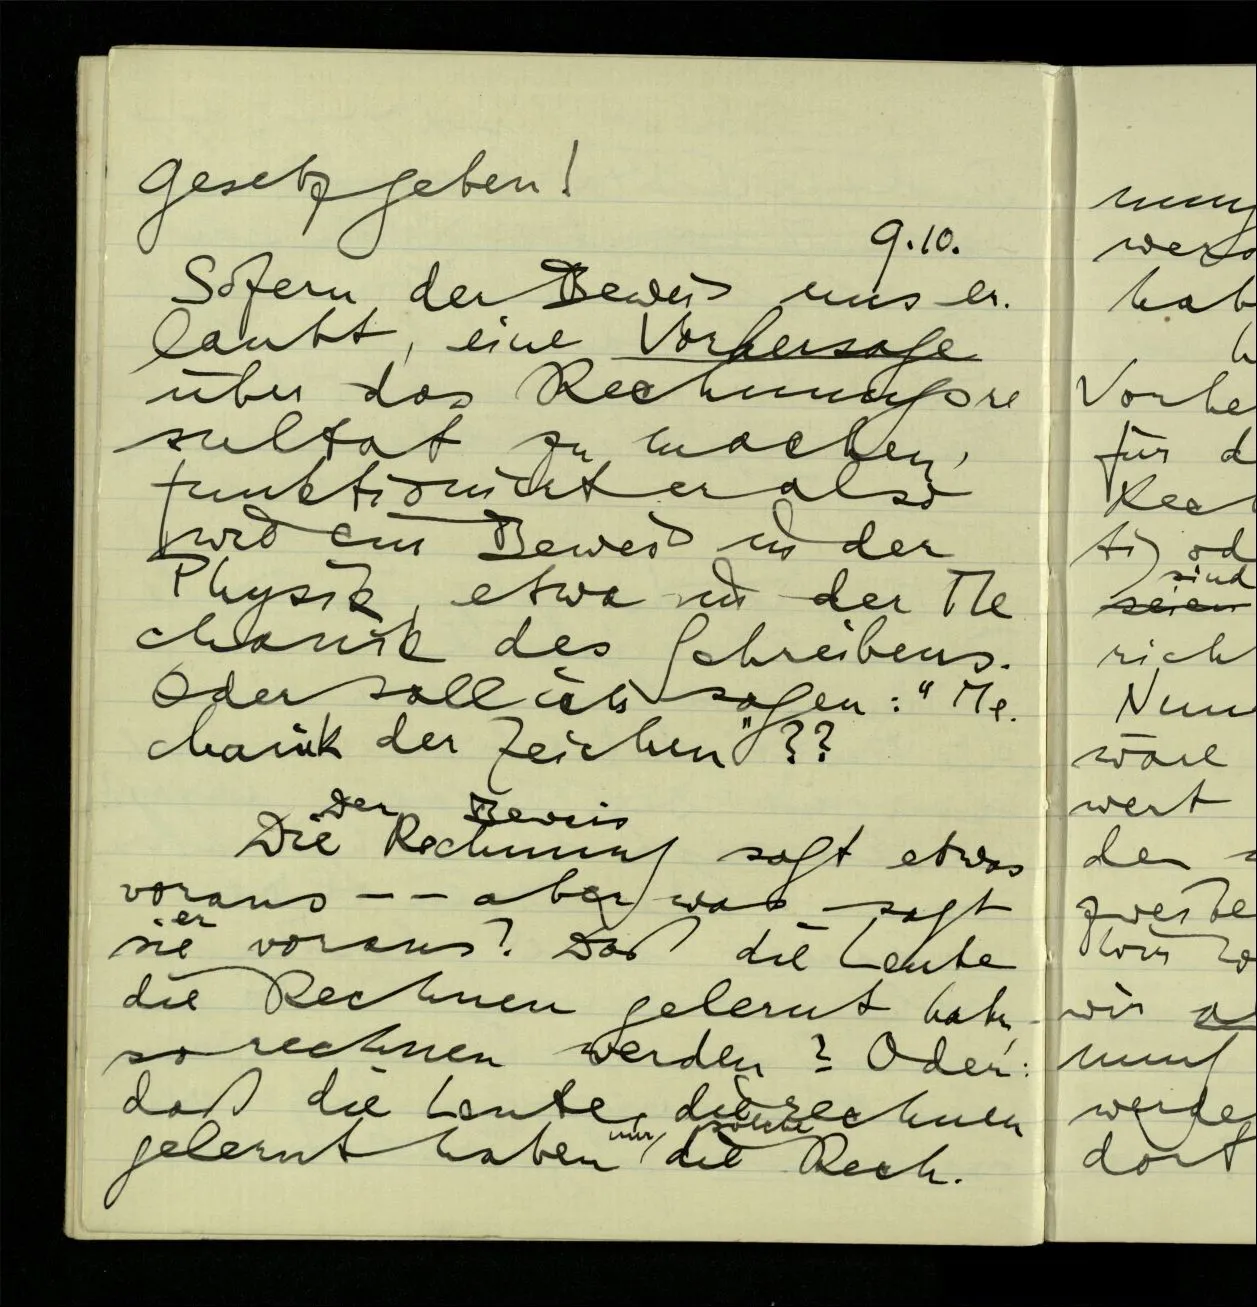 gesetz geben!
9.10.
Sofern der Beweis uns er-
laubt, eine Vorhersage
über das Rechnungsre
sultat zu machen,
funktioniert er also
wie ein Beweis in der
Physik, etwa in der Me
chanik des Schreibens.
Oder soll ich sagen: "Me-
chanik der Zeichen"??
Der Beweis
Die Rechnung sagt etwas
voraus -- aber was sagt
er
sie voraus? Daß die Leute
die Rechnen gelernt haben
so rechnen werden? Oder:
daß die Leute, die rechnen
gelernt haben nur solche
die Rech-
nung
werd
hab
Vorhe
für d
Rech
od
sind
seien
rich
Nun
wäre
wert
den
zweite
wir
werde
dort